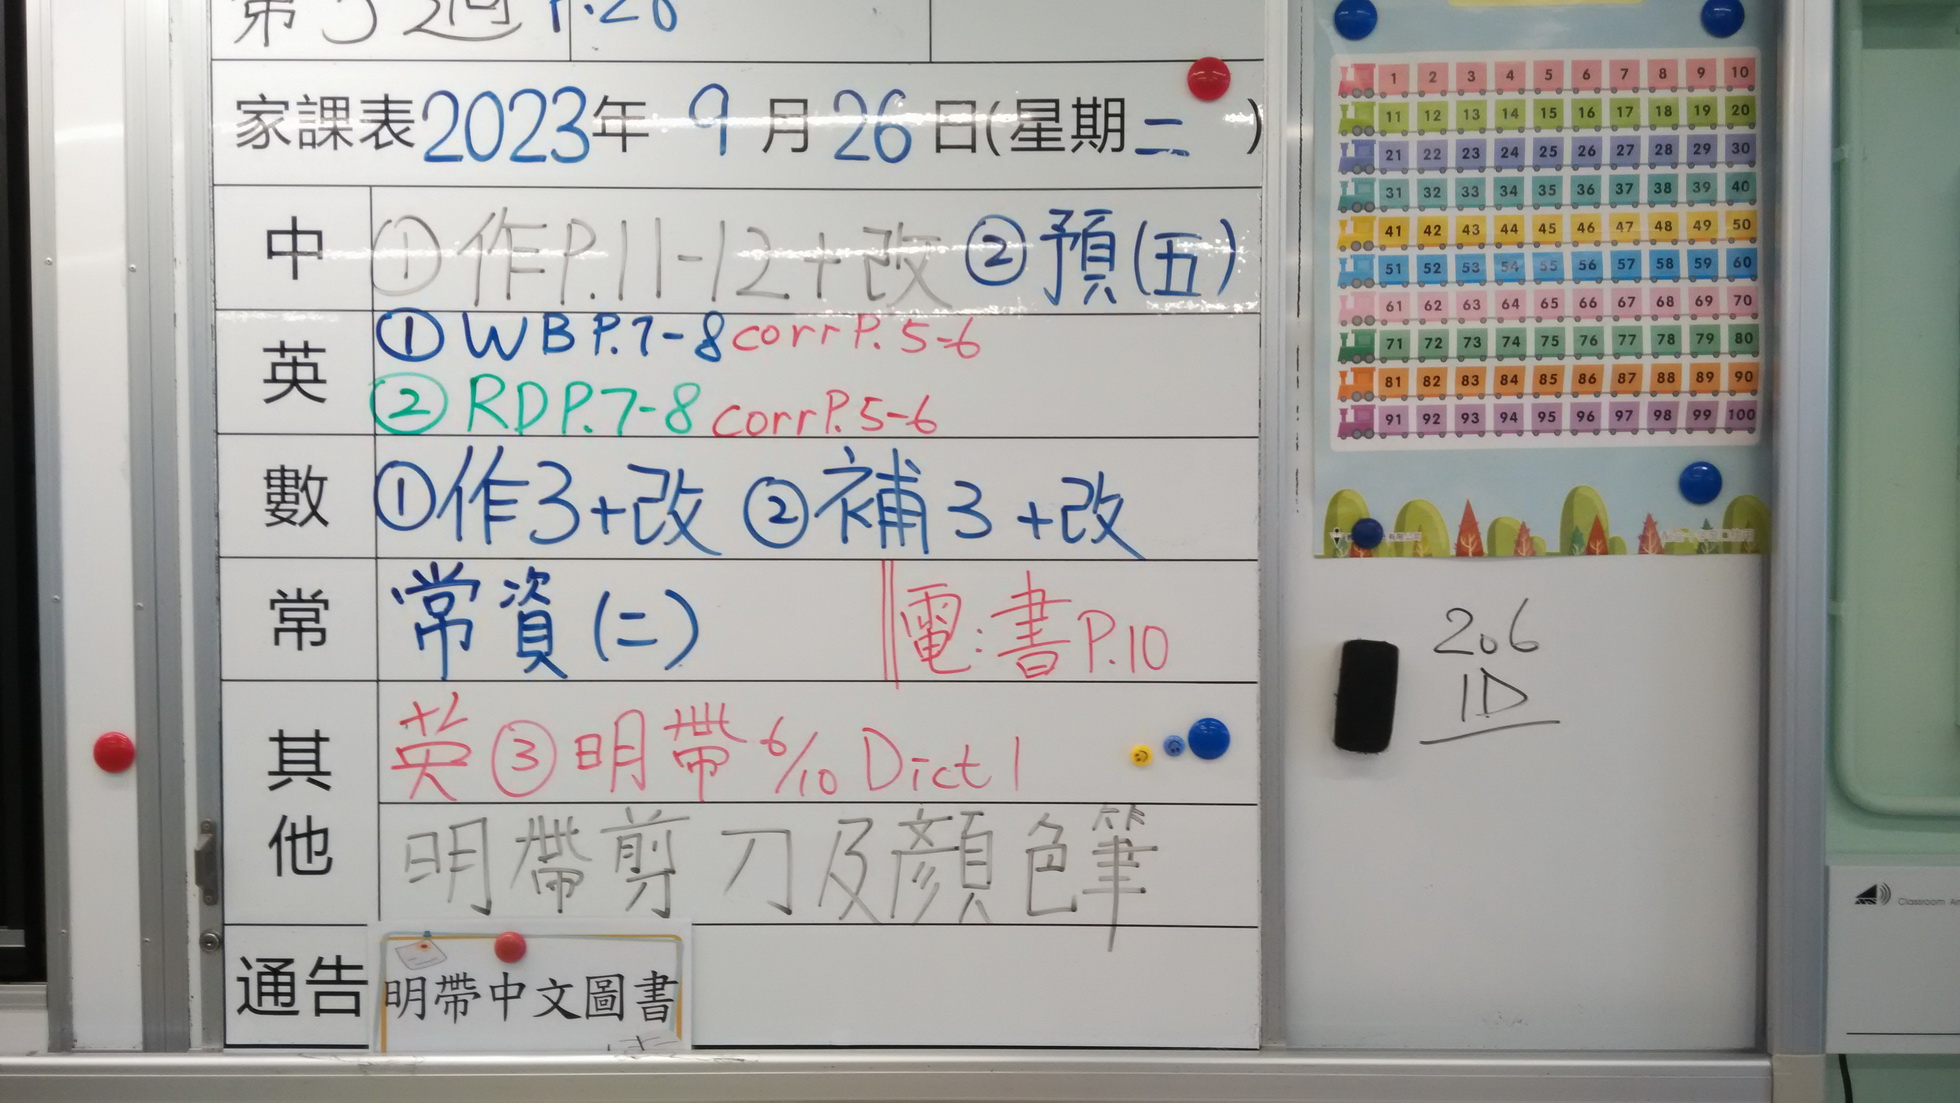 第5週 P.26
家課表2023年 9 月 26 日(星期二 )
中 ①作P.11-12+改 ②預(五)
英 ①WB P.7-8 corr P.5-6
②RD P.7-8 corr P.5-6
數 ①作3+改 ②補3+改
常 常資(二) 電:書P.10
其他 英③明帶6/10 Dict 1
明帶剪刀及顏色筆
通告 明帶中文圖書
1 2 3 4 5 6 7 8 9 10
11 12 13 14 15 16 17 18 19 20
21 22 23 24 25 26 27 28 29 30
31 32 33 34 35 36 37 38 39 40
41 42 43 44 45 46 47 48 49 50
51 52 53 54 55 56 57 58 59 60
61 62 63 64 65 66 67 68 69 70
71 72 73 74 75 76 77 78 79 80
81 82 83 84 85 86 87 88 89 90
91 92 93 94 95 96 97 98 99 100
206
1D
Classroom